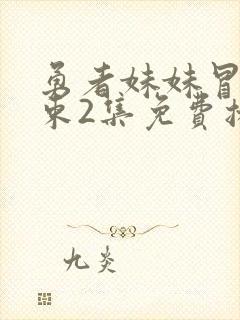 勇者妹妹冒
束2集免费
九炎